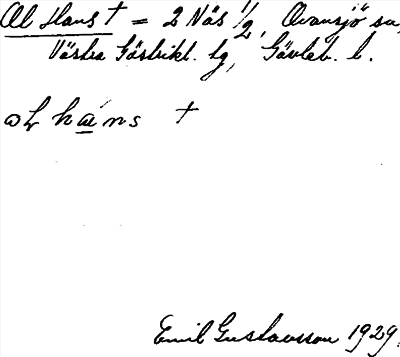 Ol Hans † = 2 Näs 1/2, Ovansjö sn,
Västra Gästrikl. tg, Gävleb. l.
ωL hans †
Emil Gustavsson 1929.